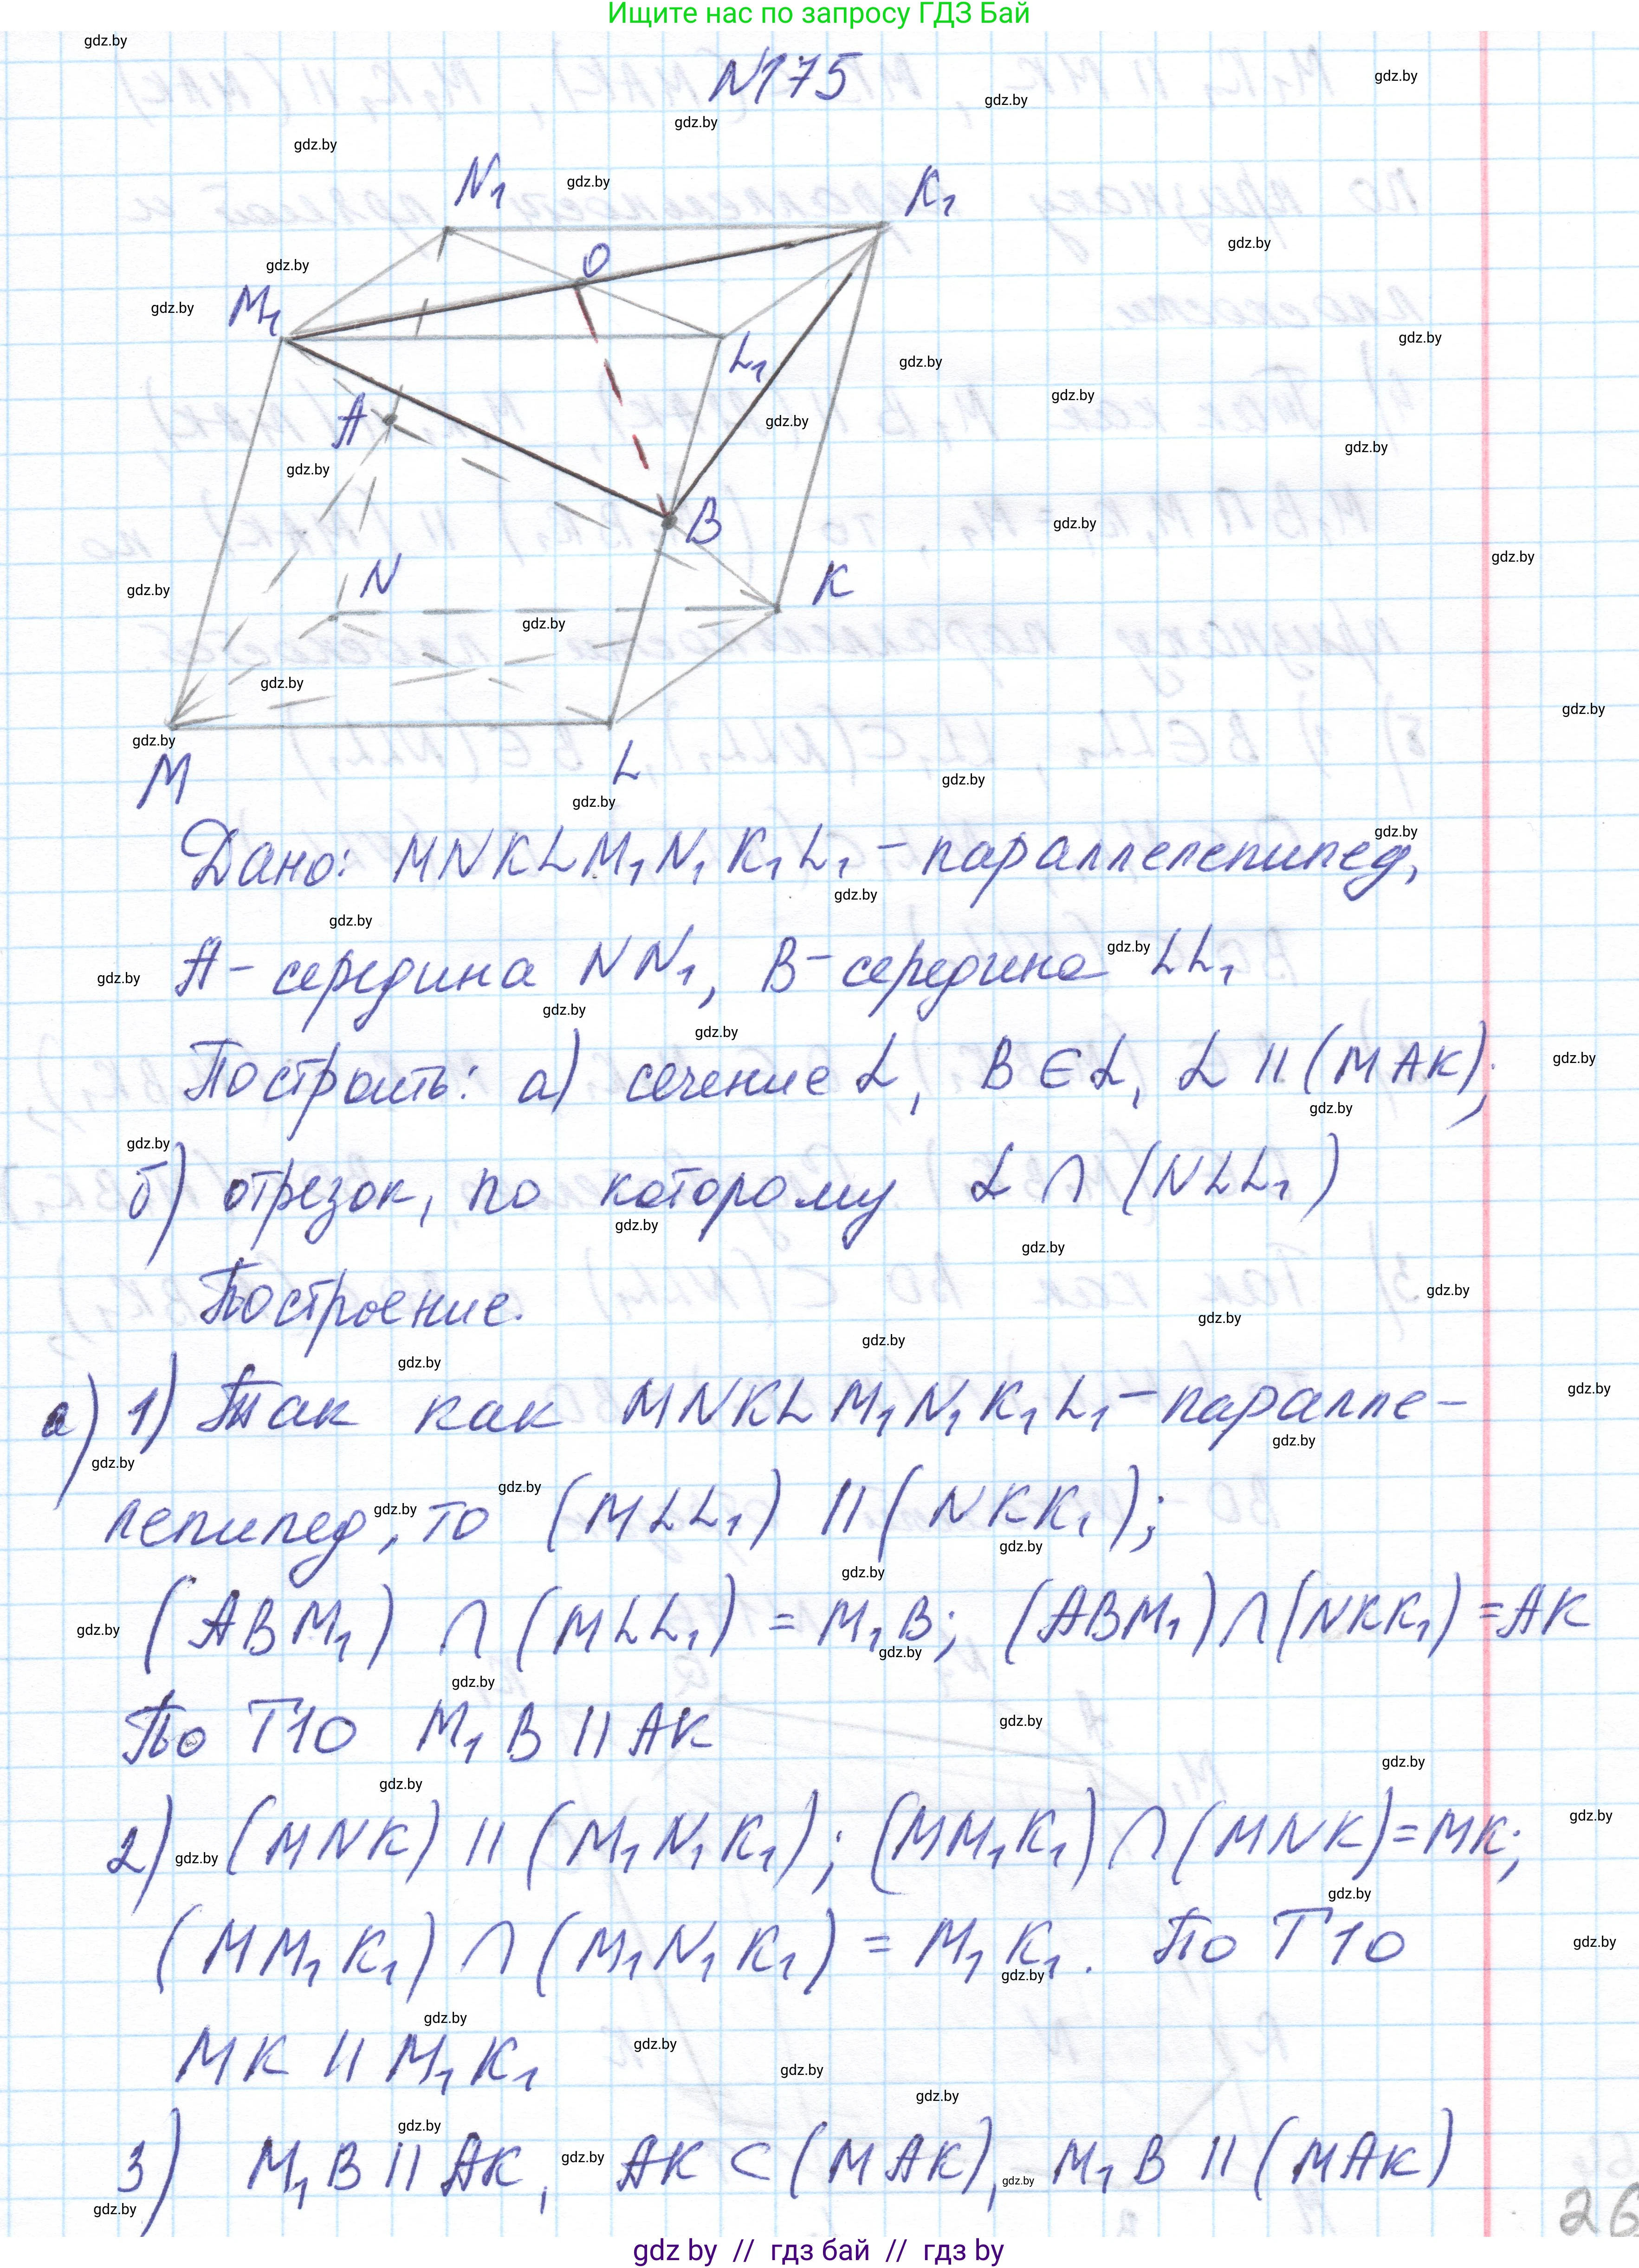 Ищите нас по запросу ГДЗ Бай
N175
N₁
K₁
O
M₁
L₁
A
B
N
K
M
L
Дано: MNKLM₁N₁K₁L₁ - параллелепипед,
A - середина NN₁, B - середина LL₁
Построить: а) сечение L, B ∈ L, L || (MAK);
б) отрезок, по которому L ∩ (NLL₁)
Построение.
а) 1) Так как MNKLM₁N₁K₁L₁ - паралле-
лепипед, то (MLL₁) || (NKK₁);
(ABM₁) ∩ (MLL₁) = M₁B; (ABM₁) ∩ (NKK₁) = AK
По Т10 M₁B || AK
2) (MNK) || (M₁N₁K₁); (MM₁K₁) ∩ (MNK) = MK;
(MM₁K₁) ∩ (M₁N₁K₁) = M₁K₁. По Т10
MK || M₁K₁
3) M₁B || AK, AK ⊂ (MAK), M₁B || (MAK)
26
gdz by // гдз бай // гдз by